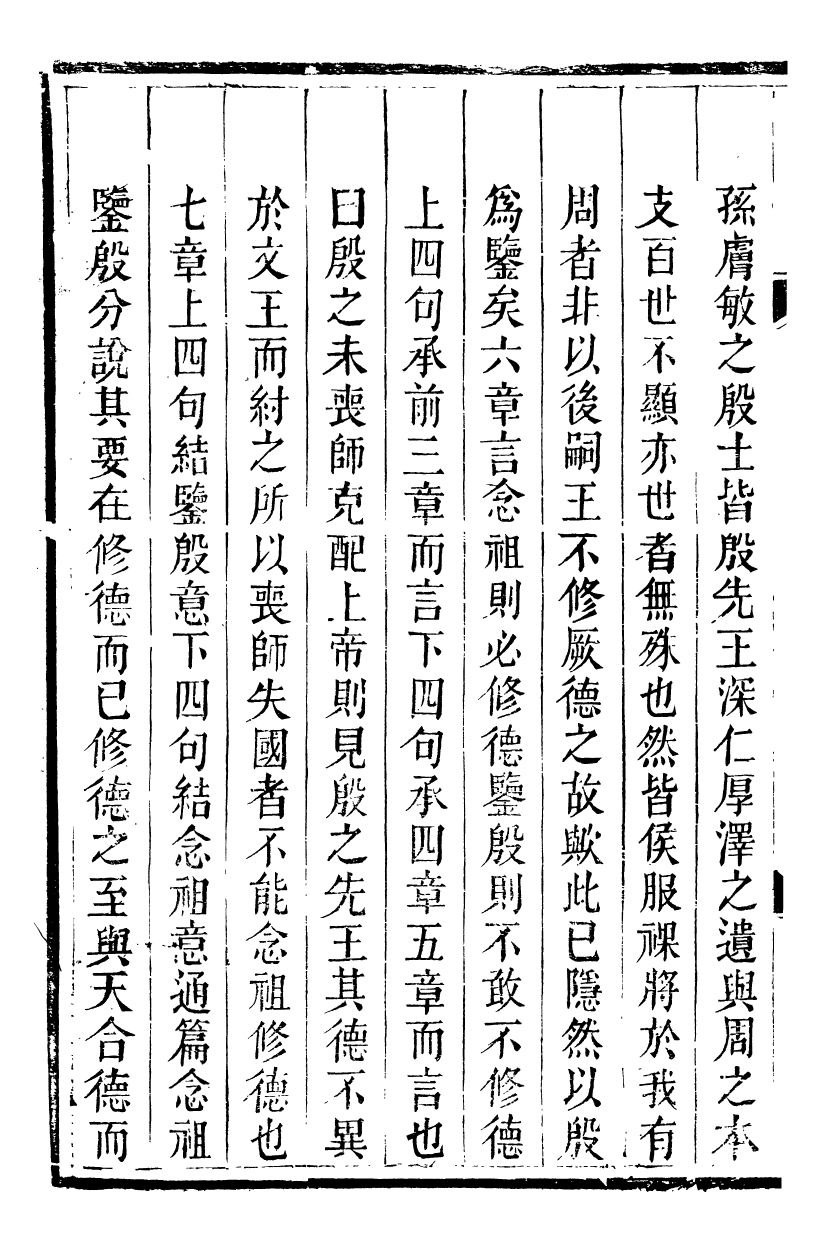 孫膚敏之殷士皆殷先王深仁厚澤之遺與周之本
支百世不顯亦世者無殊也然皆侯服祼將於我有
周者非以後嗣王不修厥德之故歟此已隱然以殷
爲鑒矣六章言念祖則必修德鑒殷則不敢不修德
上四句承前三章而言下四句承四章五章而言也
曰殷之未喪師克配上帝則見殷之先王其德不異
於文王而紂之所以喪師失國者不能念祖修德也
七章上四句結鑒殷意下四句結念祖意通篇念祖
鑒殷分說其要在修德而已修德之至與天合德而